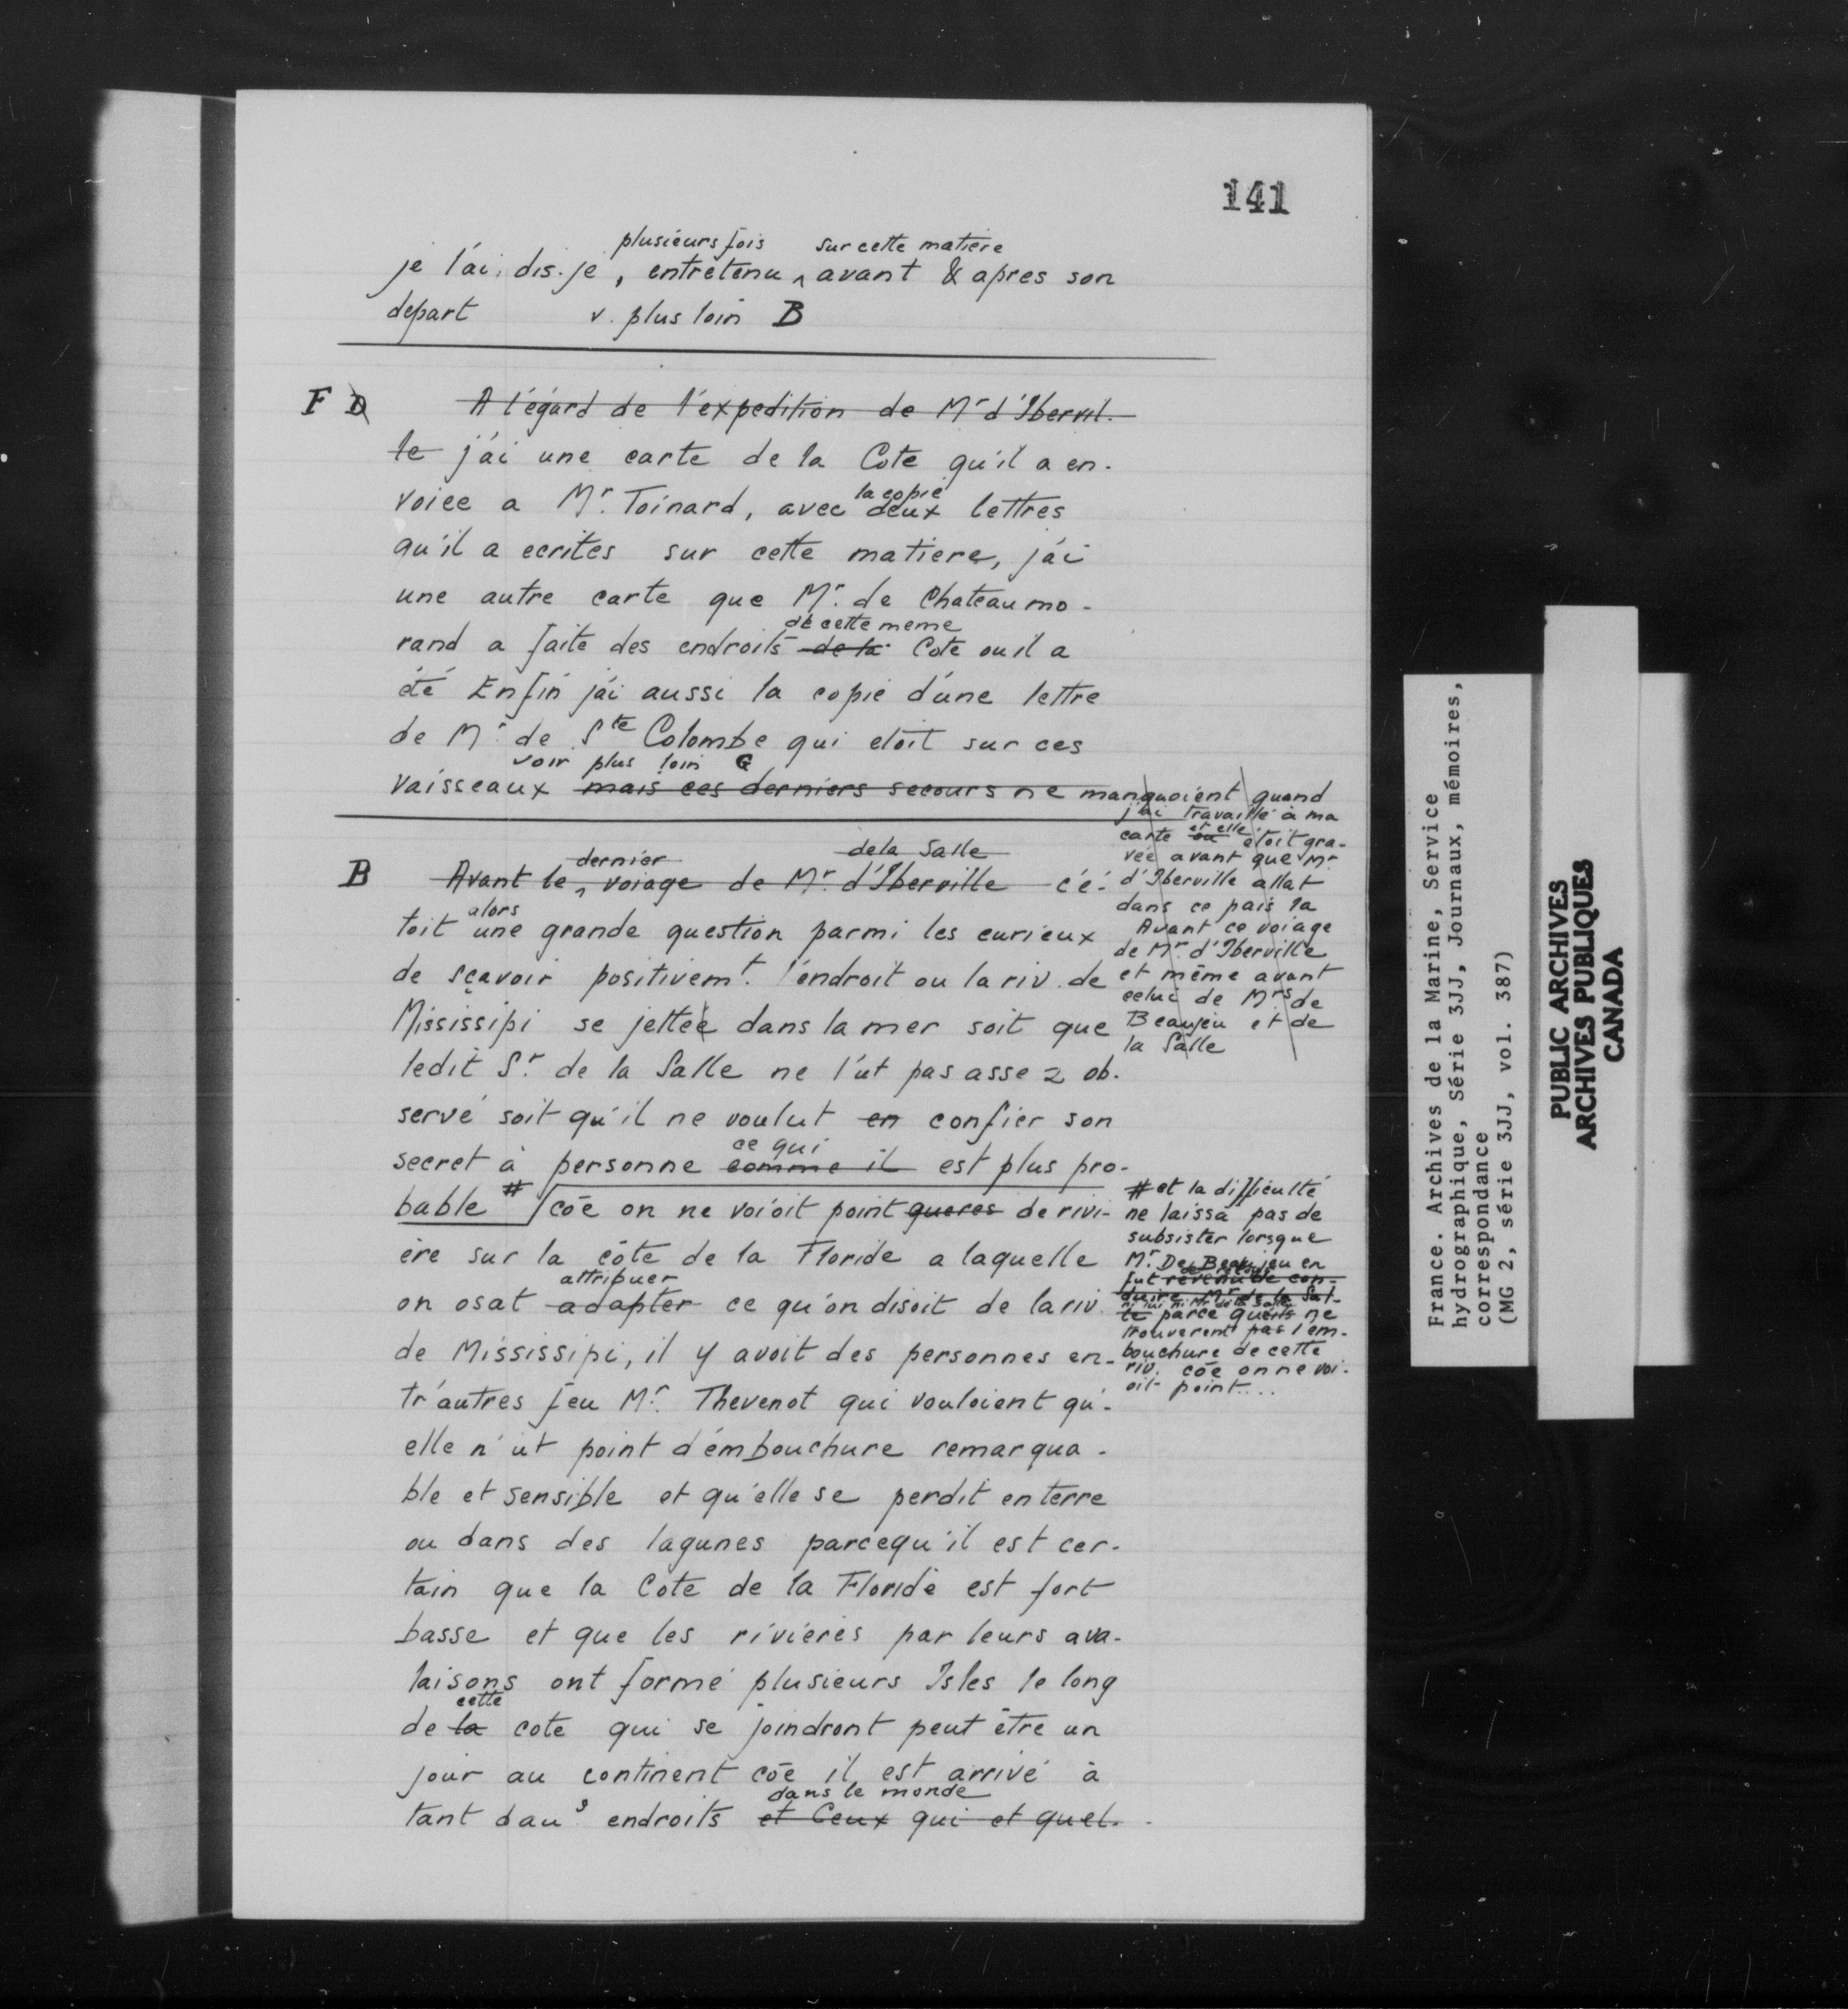 141
plusieurs fois sur cette matiere
je l'ai, dis.je, entretenu ^ avant & apres son
depart v. plus loin B
F D A l'égard de l'expedition de Mr d'Ibervil.
le j'ai une carte de la Cote qu'il a en.
la copie
voiee a Mr. Toinard, avec deux lettres
qu'il a ecrites sur cette matiere, j'ai
une autre carte que Mr. de Chateaumo-
de cette meme
rand a faite des endroits de la Cote ou il a
été Enfin j'ai aussi la copie d'une lettre
de Mr de Ste Colombe qui etoit sur ces
voir plus loin G
vaisseaux mais ces derniers secours ne manquoient quand
j'ai travaillé à ma
carte ou et elle étoit gra-
vée avant que Mr
d'Iberville allat
dans ce pais la
Avant ce voiage
de Mr. d'Iberville
et même avant
celui de Mrs de
Beaujeu et de
la Salle
dernier dela Salle
B Avant le ^ voiage de Mr. d'Iberville c'é-
alors
toit une grande question parmi les curieux
de sçavoir positivemt. l'endroit ou la riv. de
Mississipi se jettee dans la mer soit que
ledit Sr. de la Salle ne l'ut pas assez ob.
servé soit qu'il ne voulut en confier son
ce qui
secret à personne comme il est plus pro-
bable # cōe on ne voioit point gueres de rivi-
ère sur la côte de la Floride a laquelle
attribuer
on osat adapter ce qu'on disoit de la riv.
de Mississipi, il y avoit des personnes en-
tr'autres feu Mr. Thevenot qui vouloient qu'-
elle n'ut point d'émbouchure remarqua-
ble et sensible et qu'elle se perdit en terre
ou dans des lagunes parcequ'il est cer-
tain que la Cote de la Floride est fort
basse et que les riviéres par leurs ava-
laisons ont formé plusieurs Isles le long
cette
de la cote qui se joindront peut être un
jour au continent cōe il est arrivé à
dans le monde
tant dau s endroits et Ceux qui et quel.
# et la difficulté
ne laissa pas de
subsister lorsque
Mr. De Beaujeu en
fut revenu de con-
duire Mr de la Sal-
ni lui ni Mr de la Salle
le parce qu'ils ne
trouverent pas l'em-
bouchure de cette
riv. cōe on ne voi-
oit point....
France. Archives de la Marine, Service
hydrographique, Série 3JJ, Journaux, mémoires,
correspondance
(MG 2, série 3JJ, vol. 387)
PUBLIC ARCHIVES
ARCHIVES PUBLIQUES
CANADA